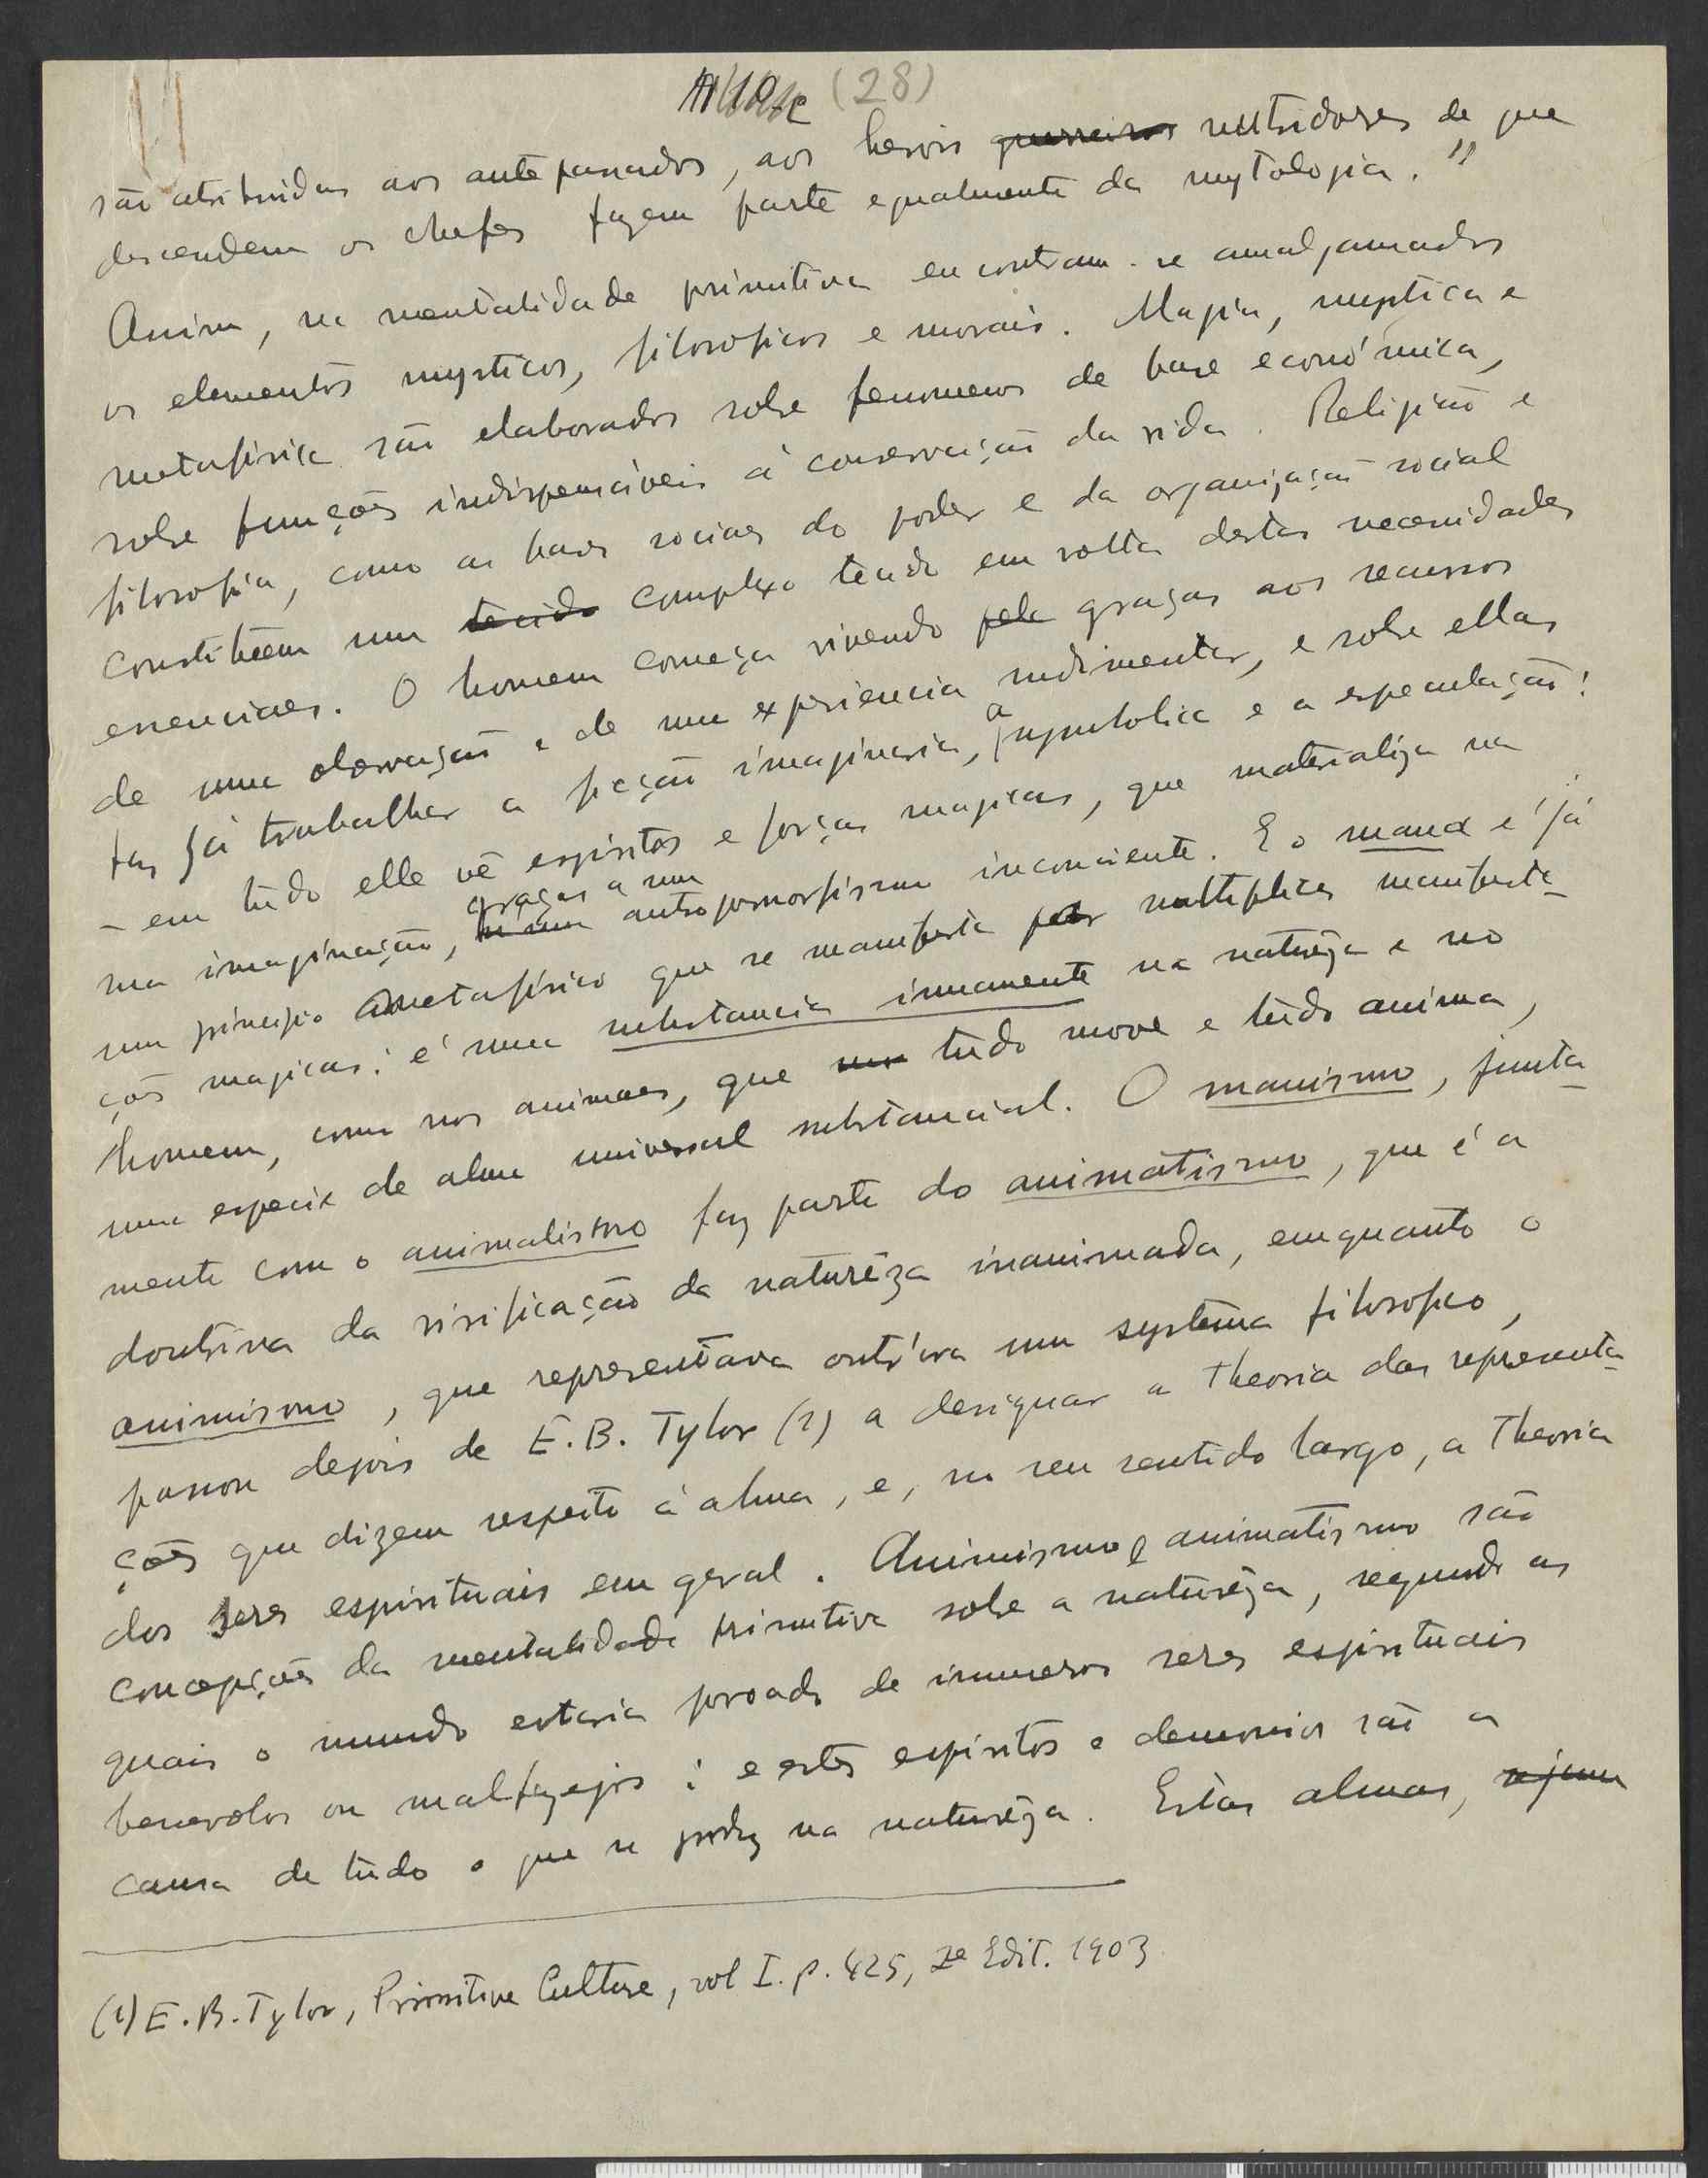 (28)
são atribuidas aos antepassados, aos herois guerreiros nutridores de que
descendem os chefes fazem parte egualmente da mytologia."
Assim, na mentalidade primitiva encontram-se amalgamados
os elementos mysticos, filosoficos e morais. Magia, mystica e
metafisica são elaborados sobre fenomenos de base económica,
sobre funções indispensáveis á conservação da vida. Religião e
filosofia, como as bases sociaes do poder e da organização social
constituem um tecido complexo tecido em volta destas necessidades
essenciaes. O homem começa vivendo pela graças aos recursos
de uma observação e de uma experiencia rudimentar, e sobre ellas
faz já trabalhar a ficção imaginaria, a symbolica e a especulação:
- em tudo elle vê espiritos e forças magicas, que materializa na
sua imaginação, graças a um antropomorfismo inconsciente. E o mana é já
um principio metafisico que se manifesta por multiplices manifesta-
ções magicas: é uma substancia immanente na naturêza e no
homem, como nos animaes, que tudo move e tudo anima,
uma especie de alma universal substancial. O manismo, junta-
mente com o animalismo faz parte do animatismo, que é a
doutrina da vivificação da naturêza inanimada, emquanto o
animismo, que representava outr'ora um systema filosofico,
passou depois de E. B. Tylor (1) a designar a theoria das representa-
ções que dizem respeito á alma, e, no seu sentido largo, a theoria
dos seres espirituais em geral. Animismo e animatismo são
concepções da mentalidade primitiva sobre a naturêza, segundo as
quais o mundo estaria povoado de inumeros seres espirituais
benevolos ou malfazejos: e estes espiritos e demonios são a
causa de tudo o que se produz na naturêza. Estas almas,
(1) E. B. Tylor, Primitive Culture, vol I. p. 425, Edit. 1903